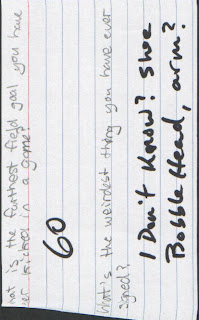 hat is the furthest field goal you have
er kicked in a game?
60
hat's the weirdest thing you have ever
signed?
I Don't Know? Shoe
Bobble Head, arm?